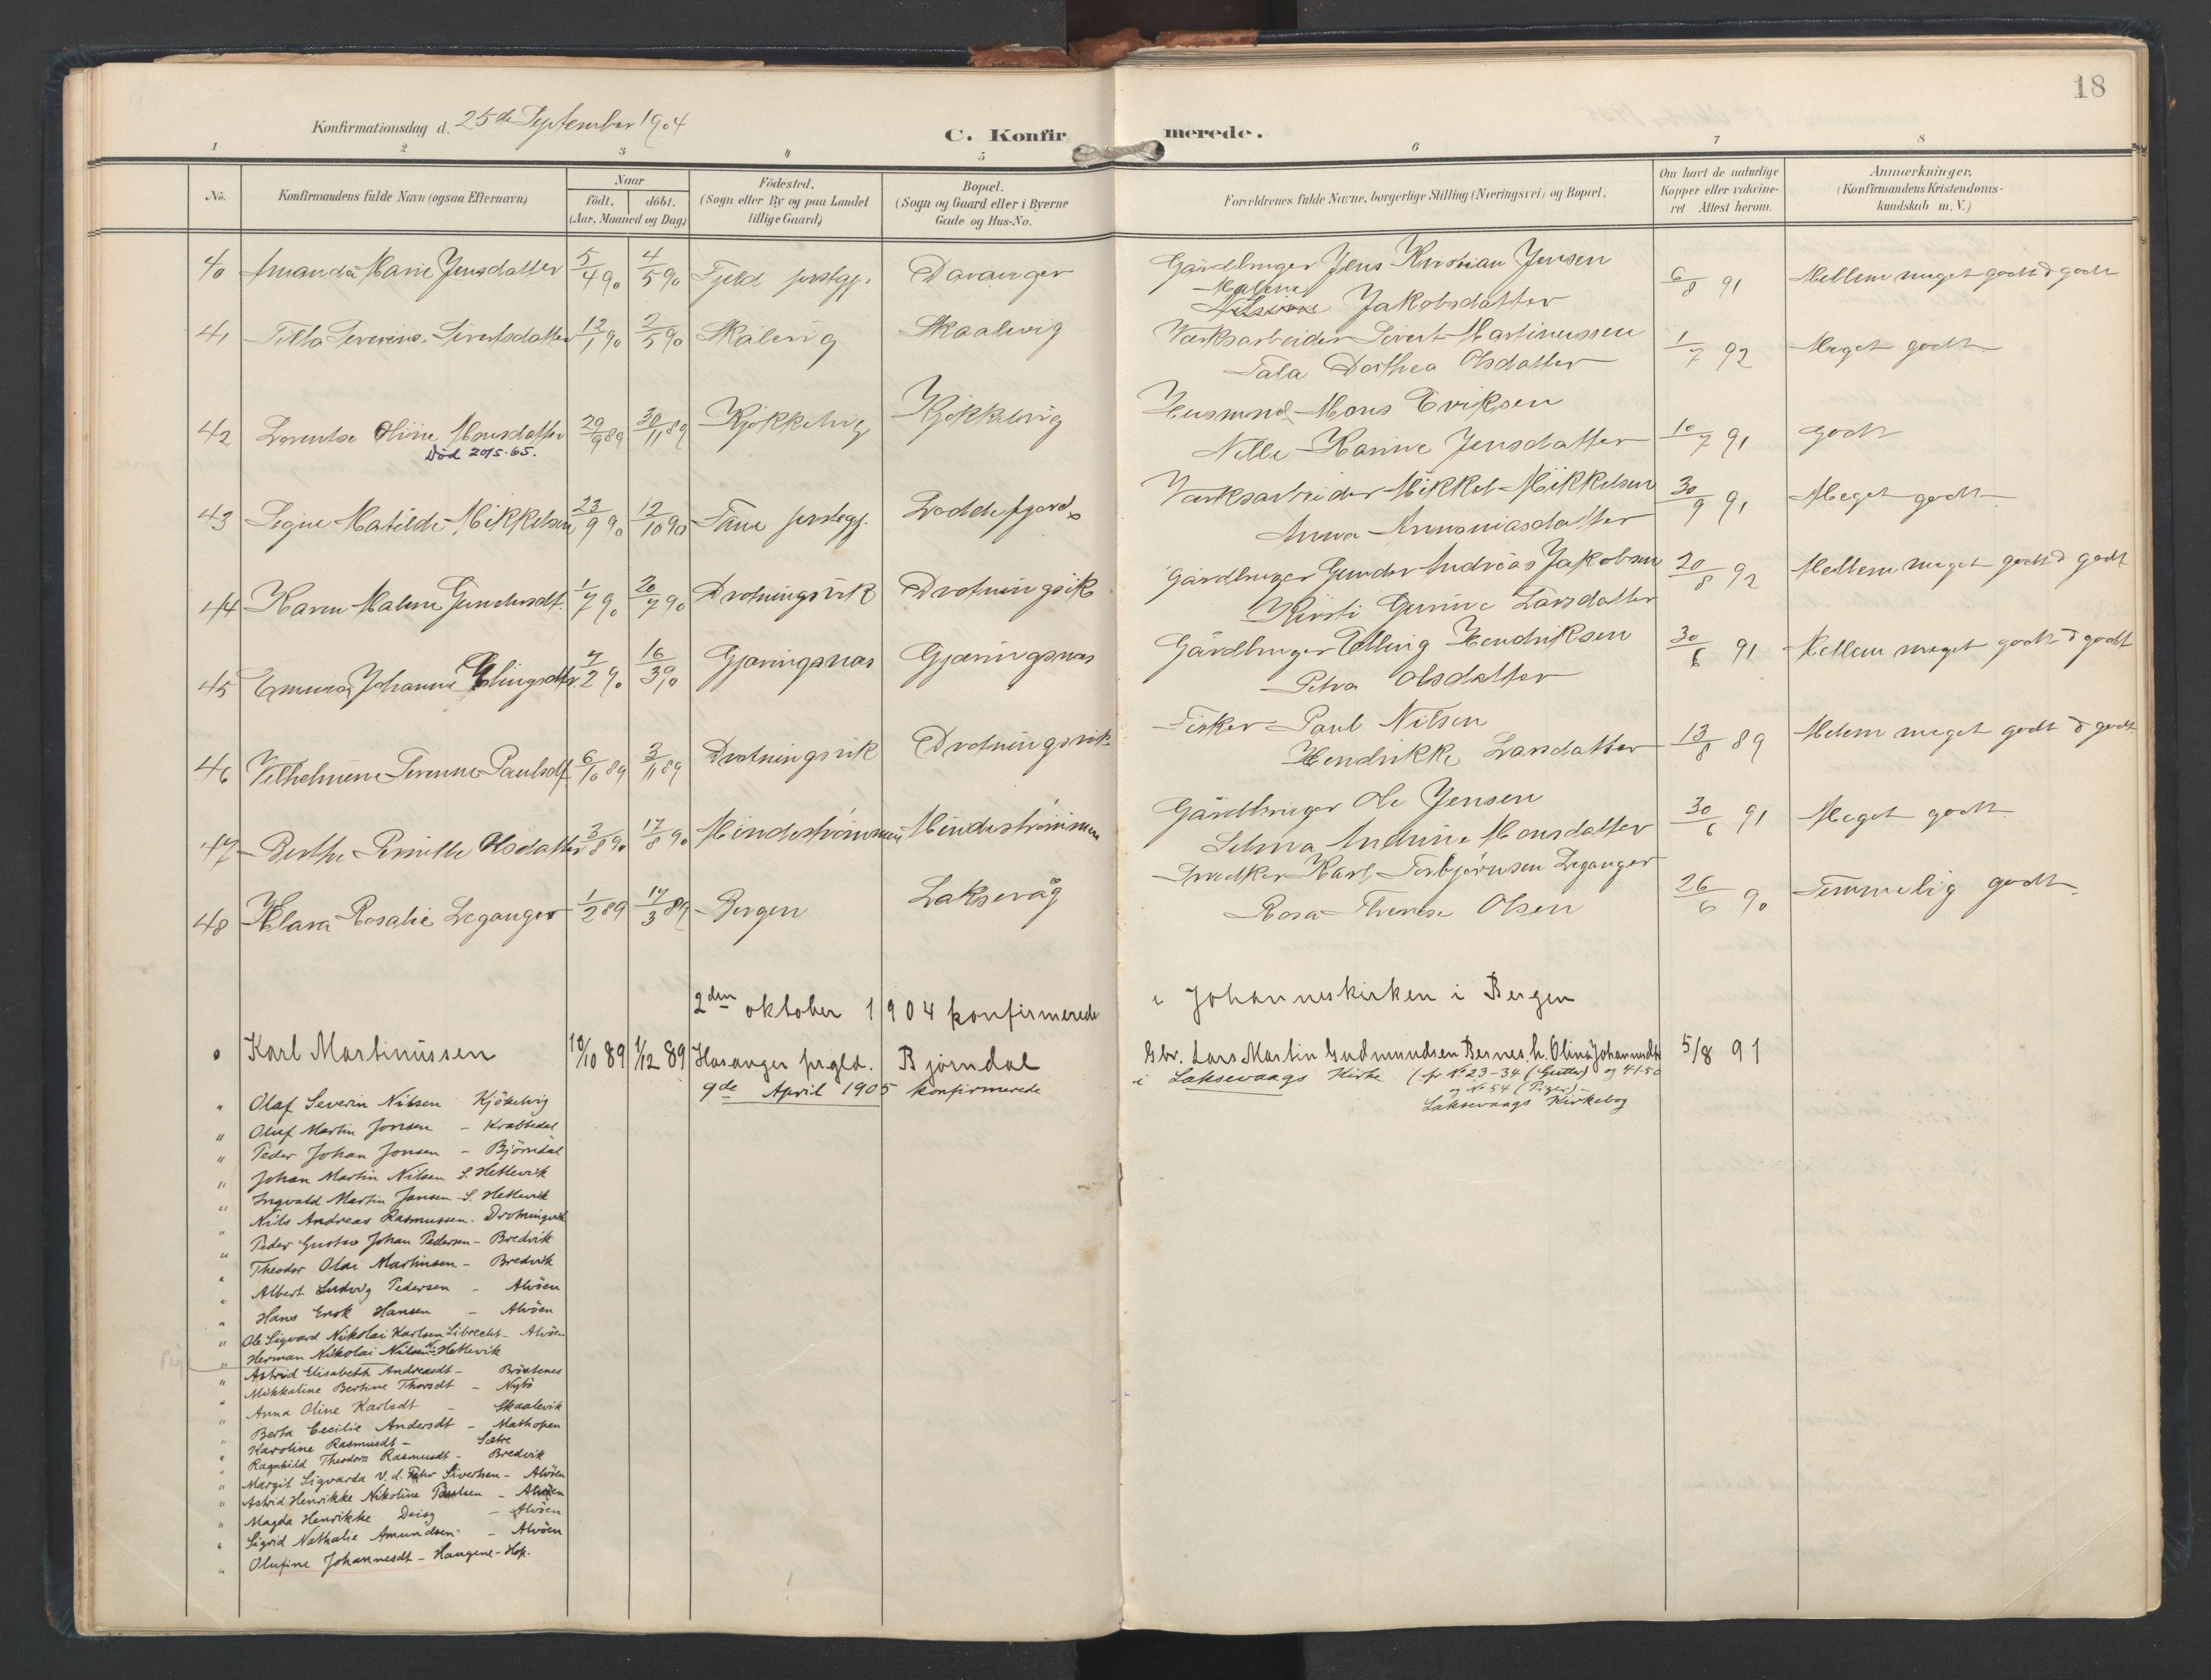 18
Konfirmationsdag d. 25de September 1904
C. Konfirmerede.
1 2 3 4 5 6 7 8
No.
Konfirmandens fulde Navn (ogsaa Efternavn)
Naar
født. døbt.
(Aar, Maaned og Dag)
Fødested.
(Sogn eller By og paa Landet
tillige Gaard)
Bopæl.
(Sogn og Gaard eller i Byerne
Gade og Hus-No.
Forældrenes fulde Navne, borgerlige Stilling (Næringsvei) og Bopæl.
Om havt de naturlige
Kopper eller vakcine-
ret Attest herom.
Anmærkninger,
(Konfirmandens Kristendoms-
kundskab m. V.)
40 Amanda Marie Jensdatter 5/4 90 4/5 90 Fjeld prstgj. Davanger Gårdbruger Jens Kristian Jensen 6/8 91 Mellem meget godt & godt
Malene
Jakobsdatter
41 Tilla Severine Sivertsdatter 12/1 90 2/5 90 Skålevig Skaalevig Værksarbeider Sivert Martinussen 1/7 92 Meget godt
Tala Dorthea Olsdatter
42 Lorentse Oline Monsdatter 29/9 89 30/11 89 Kjøkkelvig Kjøkkelvig Husmand Mons Eriksen 10/7 91 godt
Død 20/5-65. Nille Karine Jensdatter
43 Signe Matilde Mikkelsen 23/9 90 12/10 90 Fane prstegj. Loddefjord Værksarbeider Mikkel Mikkelsen 30/9 91 Meget godt
Anna Ananiasdatter
44 Karen Malene Gundersdt. 1/7 90 20/7 90 Drotningsvik Drotningsvik Gårdbruger Gunder Andreas Jakobsen 20/8 92 Mellem meget godt & godt
Kirsti Gurine Larsdatter
45 Emma Johanne Ellingsdtr 7/2 90 16/3 90 Gjæringsnæs Gjæringsnæs Gårdbruger Elling Hendriksen 30/6 91 Mellem meget godt & godt
Petra Olsdatter
46 Vilhelmine Severine Paulsdt. 6/10 89 3/11 89 Drotningsvik Drotningsvik Fisker Paul Nilsen 13/8 89 Melem meget godt & godt
Hendrikke Larsdatter
47 Berthe Pernille Olsdatter 3/8 90 17/8 90 Mindestrømmen Mindestrømmen Gårdbruger Ole Jensen 30/6 91 Meget godt
Selma Andrine Monsdatter
48 Klara Rosalie Leganger 1/2 89 17/3 89 Bergen Laksevåg Snedker Karl Torbjørnsen Leganger 26/6 90 Temmelig godt
Rosa Therese Olsen
2den oktober 1904 konfirmerede i Johanneskirken i Bergen
Karl Martinussen 10/10 89 1/12 89 Hosanger prgld. Bjørndal Gbr. Lars Martin Gudmundsen Bernes. h. Olina Johannesdt 5/8 91
9de April 1905 konfirmerede i Laksevaags Kirke (fr No 23-34 (Gutter) og 41-50
og No 54 (Piger) -
Laksevaags Kirkebog
" Olaf Severin Nilsen Kjøkelvig
" Oluf Martin Jonsen - Krabbedal
" Peder Johan Jonsen - Bjørndal
" Johan Martin Nilsen S. Hetlevik
" Ingvald Martin Jansen - S. Hetlevik
" Nils Andreas Rasmussen. Drotningvik
" Peder Gustav Johan Pedersen - Bredvik
" Theodor Olai Martinsen - Bredvik
" Albert Ludvig Pedersen - Alvøen
" Hans Erik Hansen - Alvøen
" Ole Sigvard Nikolai Karlsen Librecht - Alvøen
" Herman Nikolai Nilsen N. Hetlevik
" Astrid Elisabeth Andreasdt - Brøstenes
" Mikkaline Bertine Thorsdt - Nybø
" Anna Oline Karlsdt - Skaalevik
" Berta Cecilie Andersdt - Mathopen
" Karoline Rasmusdt - Sætre
" Ragnhild Theodora Rasmusdt - Bredvik
" Margit Sigvarda v. d. Fehr Sivertsen - Alvøen
" Astrid Henrikke Nikoline Paulsen - Alvøen
" Magda Henrikke Deisz - Alvøen
" Sigrid Nathalie Amundsen - Alvøen
" Olufine Johannesdt - Haugene - Hop.